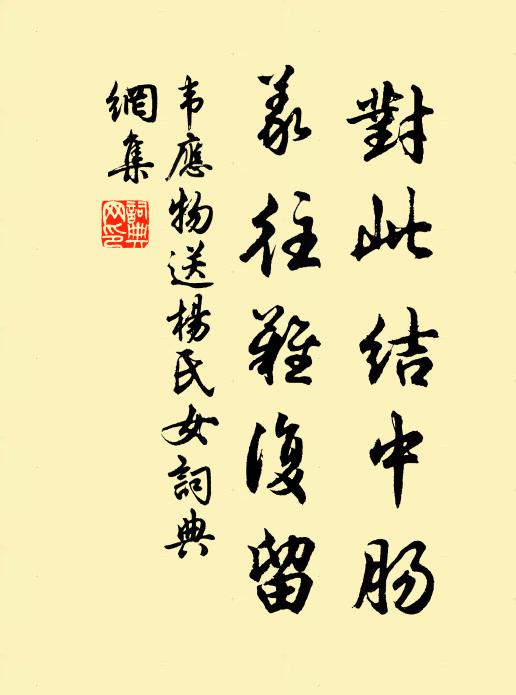 對此結中腸
義往難復留
韦應物送楊氏女詞典
網集
詞典網印